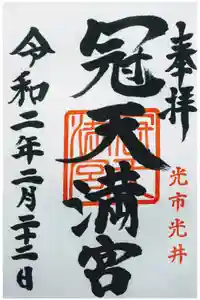 奉拝
光市光井
冠天満宮
令和二年二月二十二日